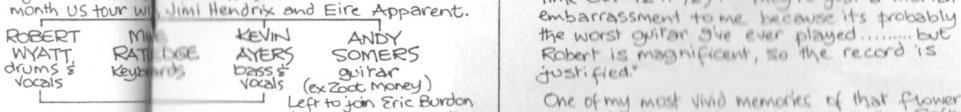 month US tour with Jimi Hendrix and Eire Apparent.
ROBERT WYATT drums & vocals
MIKE RATLEDGE keyboards
KEVIN AYERS bass & vocals
ANDY SOMERS guitar (ex Zoot Money)
Left to join Eric Burdon
embarrassment to me because its probably
the worst guitar I've ever played........ but
Robert is magnificent, so the record is
justified."
One of my most vivid memories of that flower